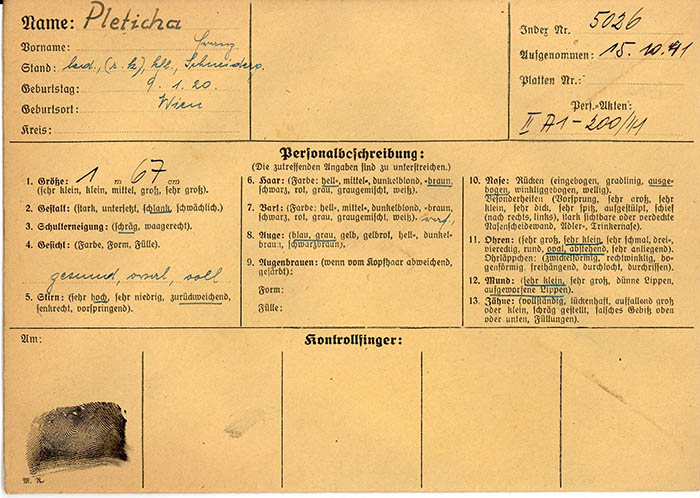 Name: Pleticha
Vorname: Franz
Stand: led., (r. k.), Schneiderg.
Geburtstag: 9. 1. 20.
Geburtsort: Wien
Kreis:
Index Nr. 5026
Aufgenommen: 15. 10. 41
Platten Nr.:
Pers.-Akten:
II A1-200/41
Personalbeschreibung:
(Die zutreffenden Angaben sind zu unterstreichen.)
1. Größe: 1 m 67 cm
(sehr klein, klein, mittel, groß, sehr groß).
2. Gestalt: (stark, untersetzt, schlank, schwächlich).
3. Schulterneigung: (schräg, waagerecht).
4. Gesicht: (Farbe, Form, Fülle).
gesund, oval, voll
5. Stirn: (sehr hoch, sehr niedrig, zurückweichend,
senkrecht, vorspringend).
6. Haar: (Farbe: hell-, mittel-, dunkelblond, -braun,
schwarz, rot, grau, graugemischt, weiß).
7. Bart: (Farbe: hell-, mittel-, dunkelblond, -braun,
schwarz, rot, grau, graugemischt, weiß).
8. Auge: (blau, grau, gelb, gelbrot, hell-, dunkel-
braun, schwarzbraun).
9. Augenbrauen: (wenn vom Kopfhaar abweichend,
gefärbt):
Form:
Fülle:
10. Nase: Rücken (eingebogen, gradlinig, ausge-
bogen, winkliggebogen, wellig).
Besonderheiten (Vorsprung, sehr groß, sehr
klein, sehr dick, sehr spitz, aufgestülpt, schief
(nach rechts, links), stark sichtbare oder verdeckte
Nasenscheidewand, Adler-, Trinkernase).
11. Ohren: (sehr groß, sehr klein, sehr schmal, drei-,
viereckig, rund, oval, abstehend, sehr anliegend).
Ohrläppchen: (zwickelförmig, rechtwinklig, bo-
genförmig, freihängend, durchlocht, durchrissen).
12. Mund: (sehr klein, sehr groß, dünne Lippen,
aufgeworfene Lippen).
13. Zähne: (vollständig, lückenhaft, auffallend groß
oder klein, schräg gestellt, falsches Gebiß oben
oder unten, Füllungen).
Am:
Kontrollfinger:
M. R.